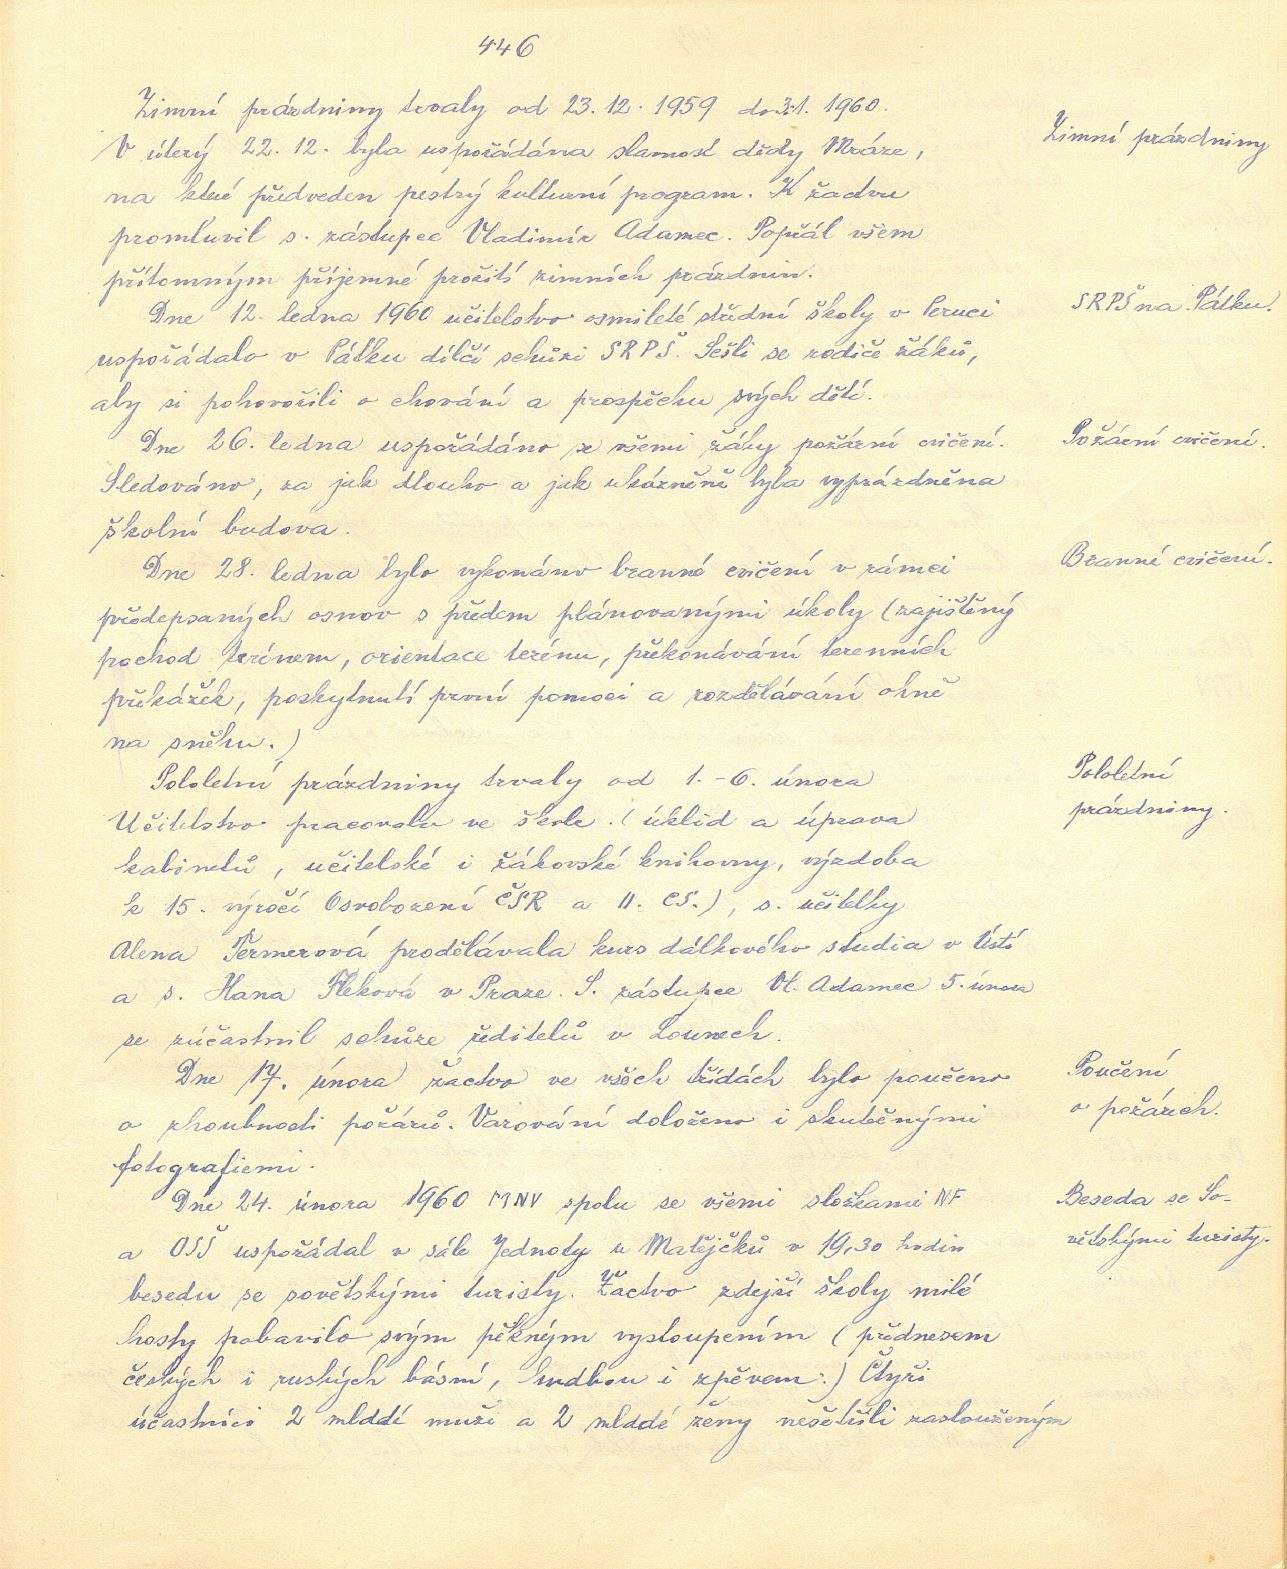 446
Zimní prázdniny trvaly od 23. 12. 1959 do 3.1. 1960.
Zimní prázdniny
V úterý 22. 12. byla uspořádána slamost dědy Mráze,
na které předveden pestrý kulturní program. K žactvu
promluvil s. zástupce Vladimír Adamec. Popřál všem
přítomným příjemné prožití zimních prázdnin.
Dne 12. ledna 1960 učitelstvo osmileté střední školy v Peruci
SRPŠ na Pátku.
uspořádalo v Pátku dílčí schůzi SRPŠ. Sešli se rodiče žáků,
aby si pohovořili o chování a prospěchu svých dětí.
Dne 26. ledna uspořádáno se všemi žáky požární cvičení.
Požární cvičení.
Sledováno, za jak dlouho a jak ukázněně byla vyprázdněna
školní budova.
Dne 28. ledna bylo vykonáno branné cvičení v rámci
Branné cvičení.
předepsaných osnov s předem plánovanými úkoly (zajištěný
pochod terénem, orientace terénu, překonávání terenních
překážek, poskytnutí první pomoci a rozdělávání ohně
na sněhu.)
Pololetní prázdniny trvaly od 1. - 6. února
Pololetní
Učitelstvo pracovalo ve škole. (úklid a úprava
prázdniny.
kabinetů, učitelské i žákovské knihovny, výzdoba
k 15. výročí Osvobození ČSR a II. CS.), s. učitelky
Alena Termerová prodělávala kurs dálkového studia v Ústí
a s. Hana Fleková v Praze. S. zástupce Vl. Adamec 5. února
se zúčastnil schůze ředitelů v Lounech.
Dne 17. února žactvo ve všech třídách bylo poučeno
Poučení
o zhoubnosti požárů. Varování doloženo i skutečnými
o požárech.
fotografiemi.
Dne 24. února 1960 MNV spolu se všemi složkami NF
Beseda se So-
a OSŠ uspořádal v sále Jednoty u Matějčků v 19,30 hodin
větskými turisty.
besedu se sovětskými turisty. Žactvo zdejší školy milé
hosty pobavilo svým pěkným vystoupením (přednesem
českých i ruských básní, hudbou i zpěvem.) Čtyři
účastníci 2 mladí muži a 2 mladé ženy nešetřili zaslouženým